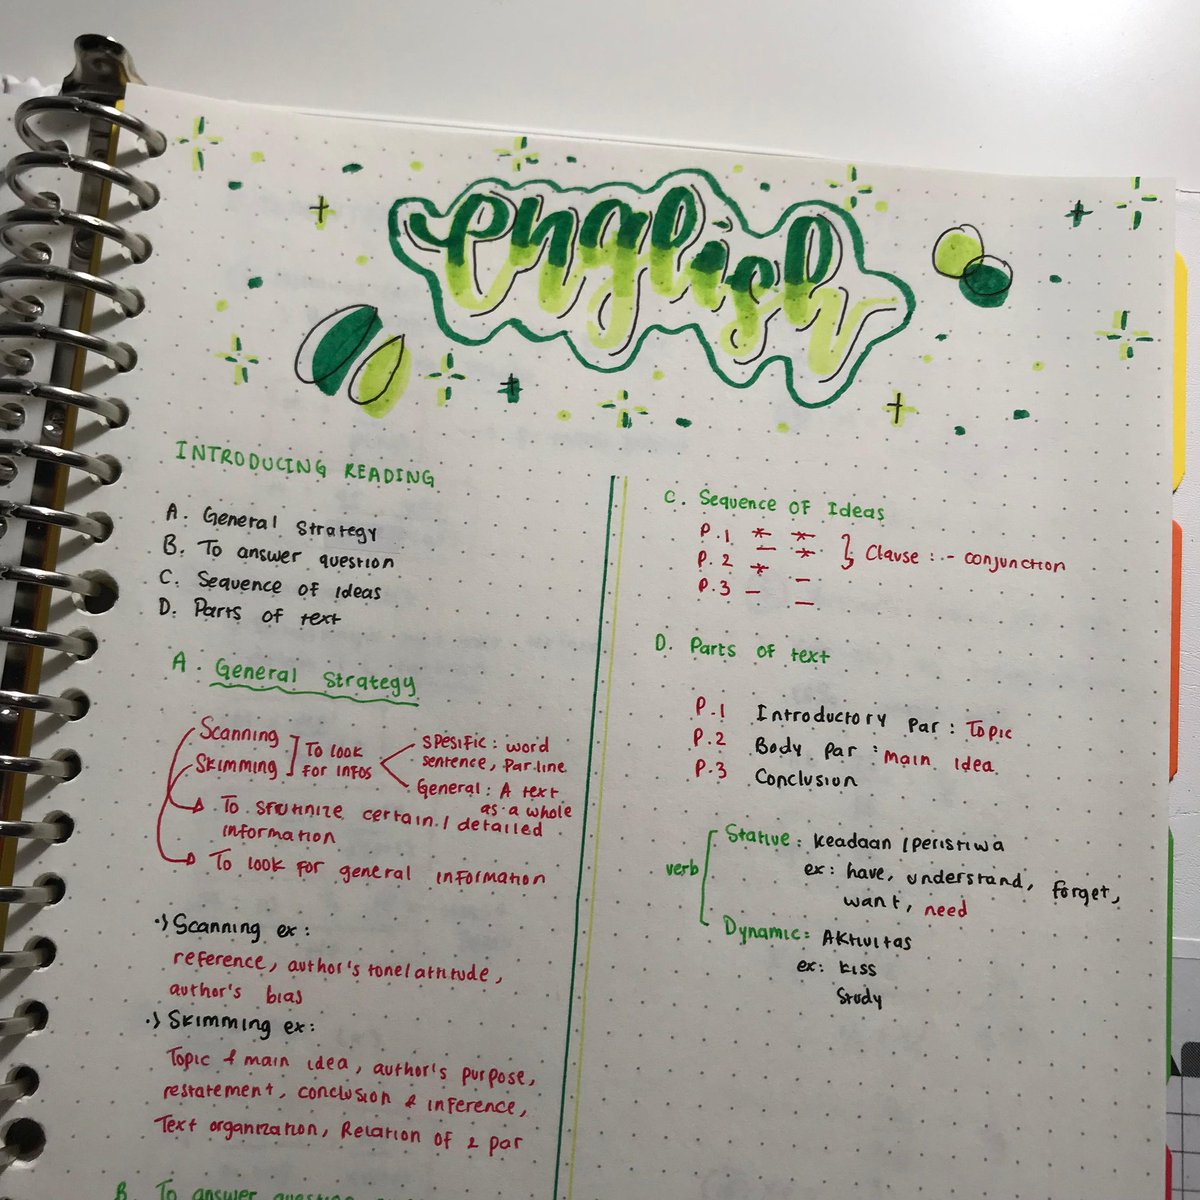 english
INTRODUCING READING
A. General Strategy
B. To answer question
C. Sequence of Ideas
D. Parts of text
A. General Strategy
Scanning
Skimming
To look
for infos
spesific: word
sentence, par.line
General: A text
as a whole
To scrutinize certain / detailed
information
To look for general information
Scanning ex:
reference, author's tone/attitude,
author's bias
Skimming ex:
Topic & main idea, author's purpose,
restatement, conclusion & inference,
Text organization, Relation of 2 par
B. To answer question
C. Sequence of Ideas
P.1
P.2
P.3
Clause: - conjunction
D. Parts of text
P.1 Introductory par: Topic
P.2 Body par: main idea
P.3 Conclusion
verb
Stative: keadaan / peristiwa
ex: have, understand, forget,
want, need
Dynamic: Aktivitas
ex: kiss
Study